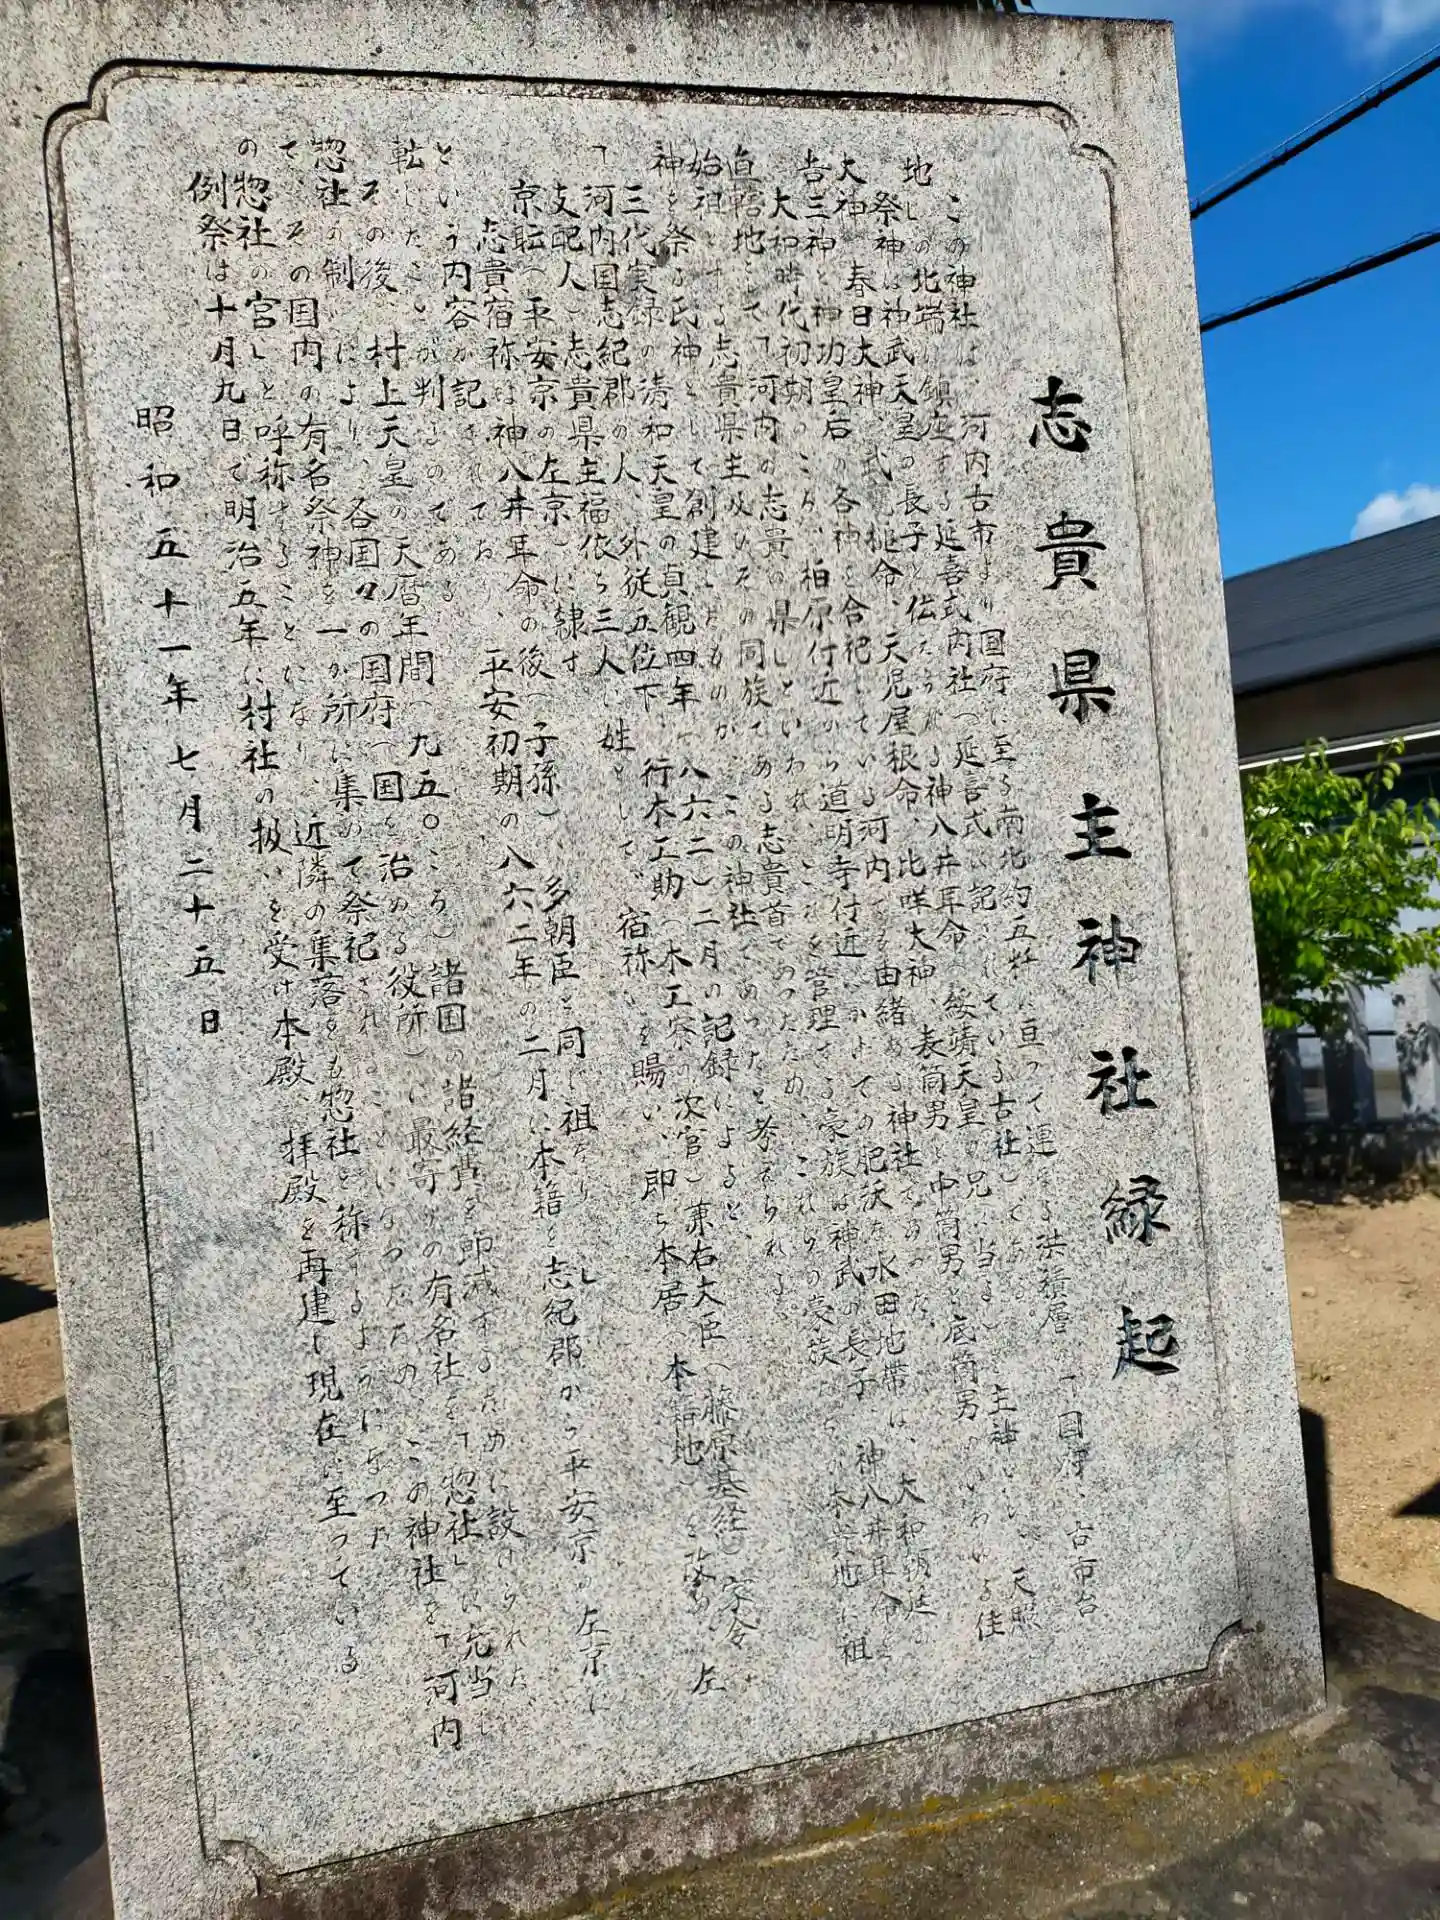 志貴県主神社縁起
この神社は、河内古市より国府に至る南北約五粁に亘って連なる洪積層の「国府、古市台
地」の北端に鎮座する延喜式内社(延喜式に記されている古社)である。
祭神は神武天皇の長子と伝えられる神八井耳命(綏靖天皇の兄に当る)を主神とし、天照
大神、春日大神、武甕槌命、天児屋根命、比咩大神、表筒男と中筒男と底筒男のいわゆる住
吉三神と、神功皇后の各神を合祀している河内でも由緒ある神社であった。
大和時代初期のころ、柏原付近から道明寺付近にかけての肥沃な水田地帯は、大和朝廷の
直轄地として「河内の志貴の県」といわれ、これを管理する豪族は神武の長子、神八井耳命を
始祖とする志貴県主及びその同族である志貴首であったため、これらの豪族たちの本貫地に祖
神を祭る氏神として創建したものが、この神社であったと考えられる。
三代実録の清和天皇の貞観四年(八六二)二月の記録によると、
「河内国志紀郡の人、外従五位下、行木工助(木工寮の次官)兼右大臣(藤原基経)家令
支配人)志貴県主福依ら三人に姓として、宿祢を賜い、即ち本居(本籍地)を改め、左
京職(平安京の左京)に隷す
志貴宿祢は神八井耳命の後(子孫)、多朝臣と同じ祖なり」
という内容が記されており、平安初期の八六二年の二月に本籍を志紀郡から平安京の左京に
転じたことが判るのである。
その後、村上天皇の天暦年間(九五〇ころ)諸国の諸経費を節減するために設けられた
惣社の制により、各国々の国府(国を治める役所)に最寄りの有名社を「惣社」に充当し
て、その国内の有名祭神を一か所に集めて祭祀されることになったため、この神社を「河内
の惣社の宮」と呼称することになり、近隣の集落をも惣社と称するようになった
例祭は十月九日で明治五年に村社の扱いを受け本殿、拝殿を再建し現在に至っている
昭和五十一年七月二十五日